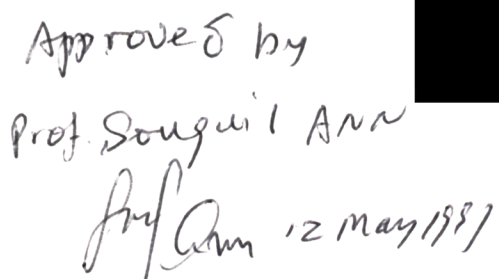 Approved by
Prof. Souguil ANN
Ann 12 May 1997